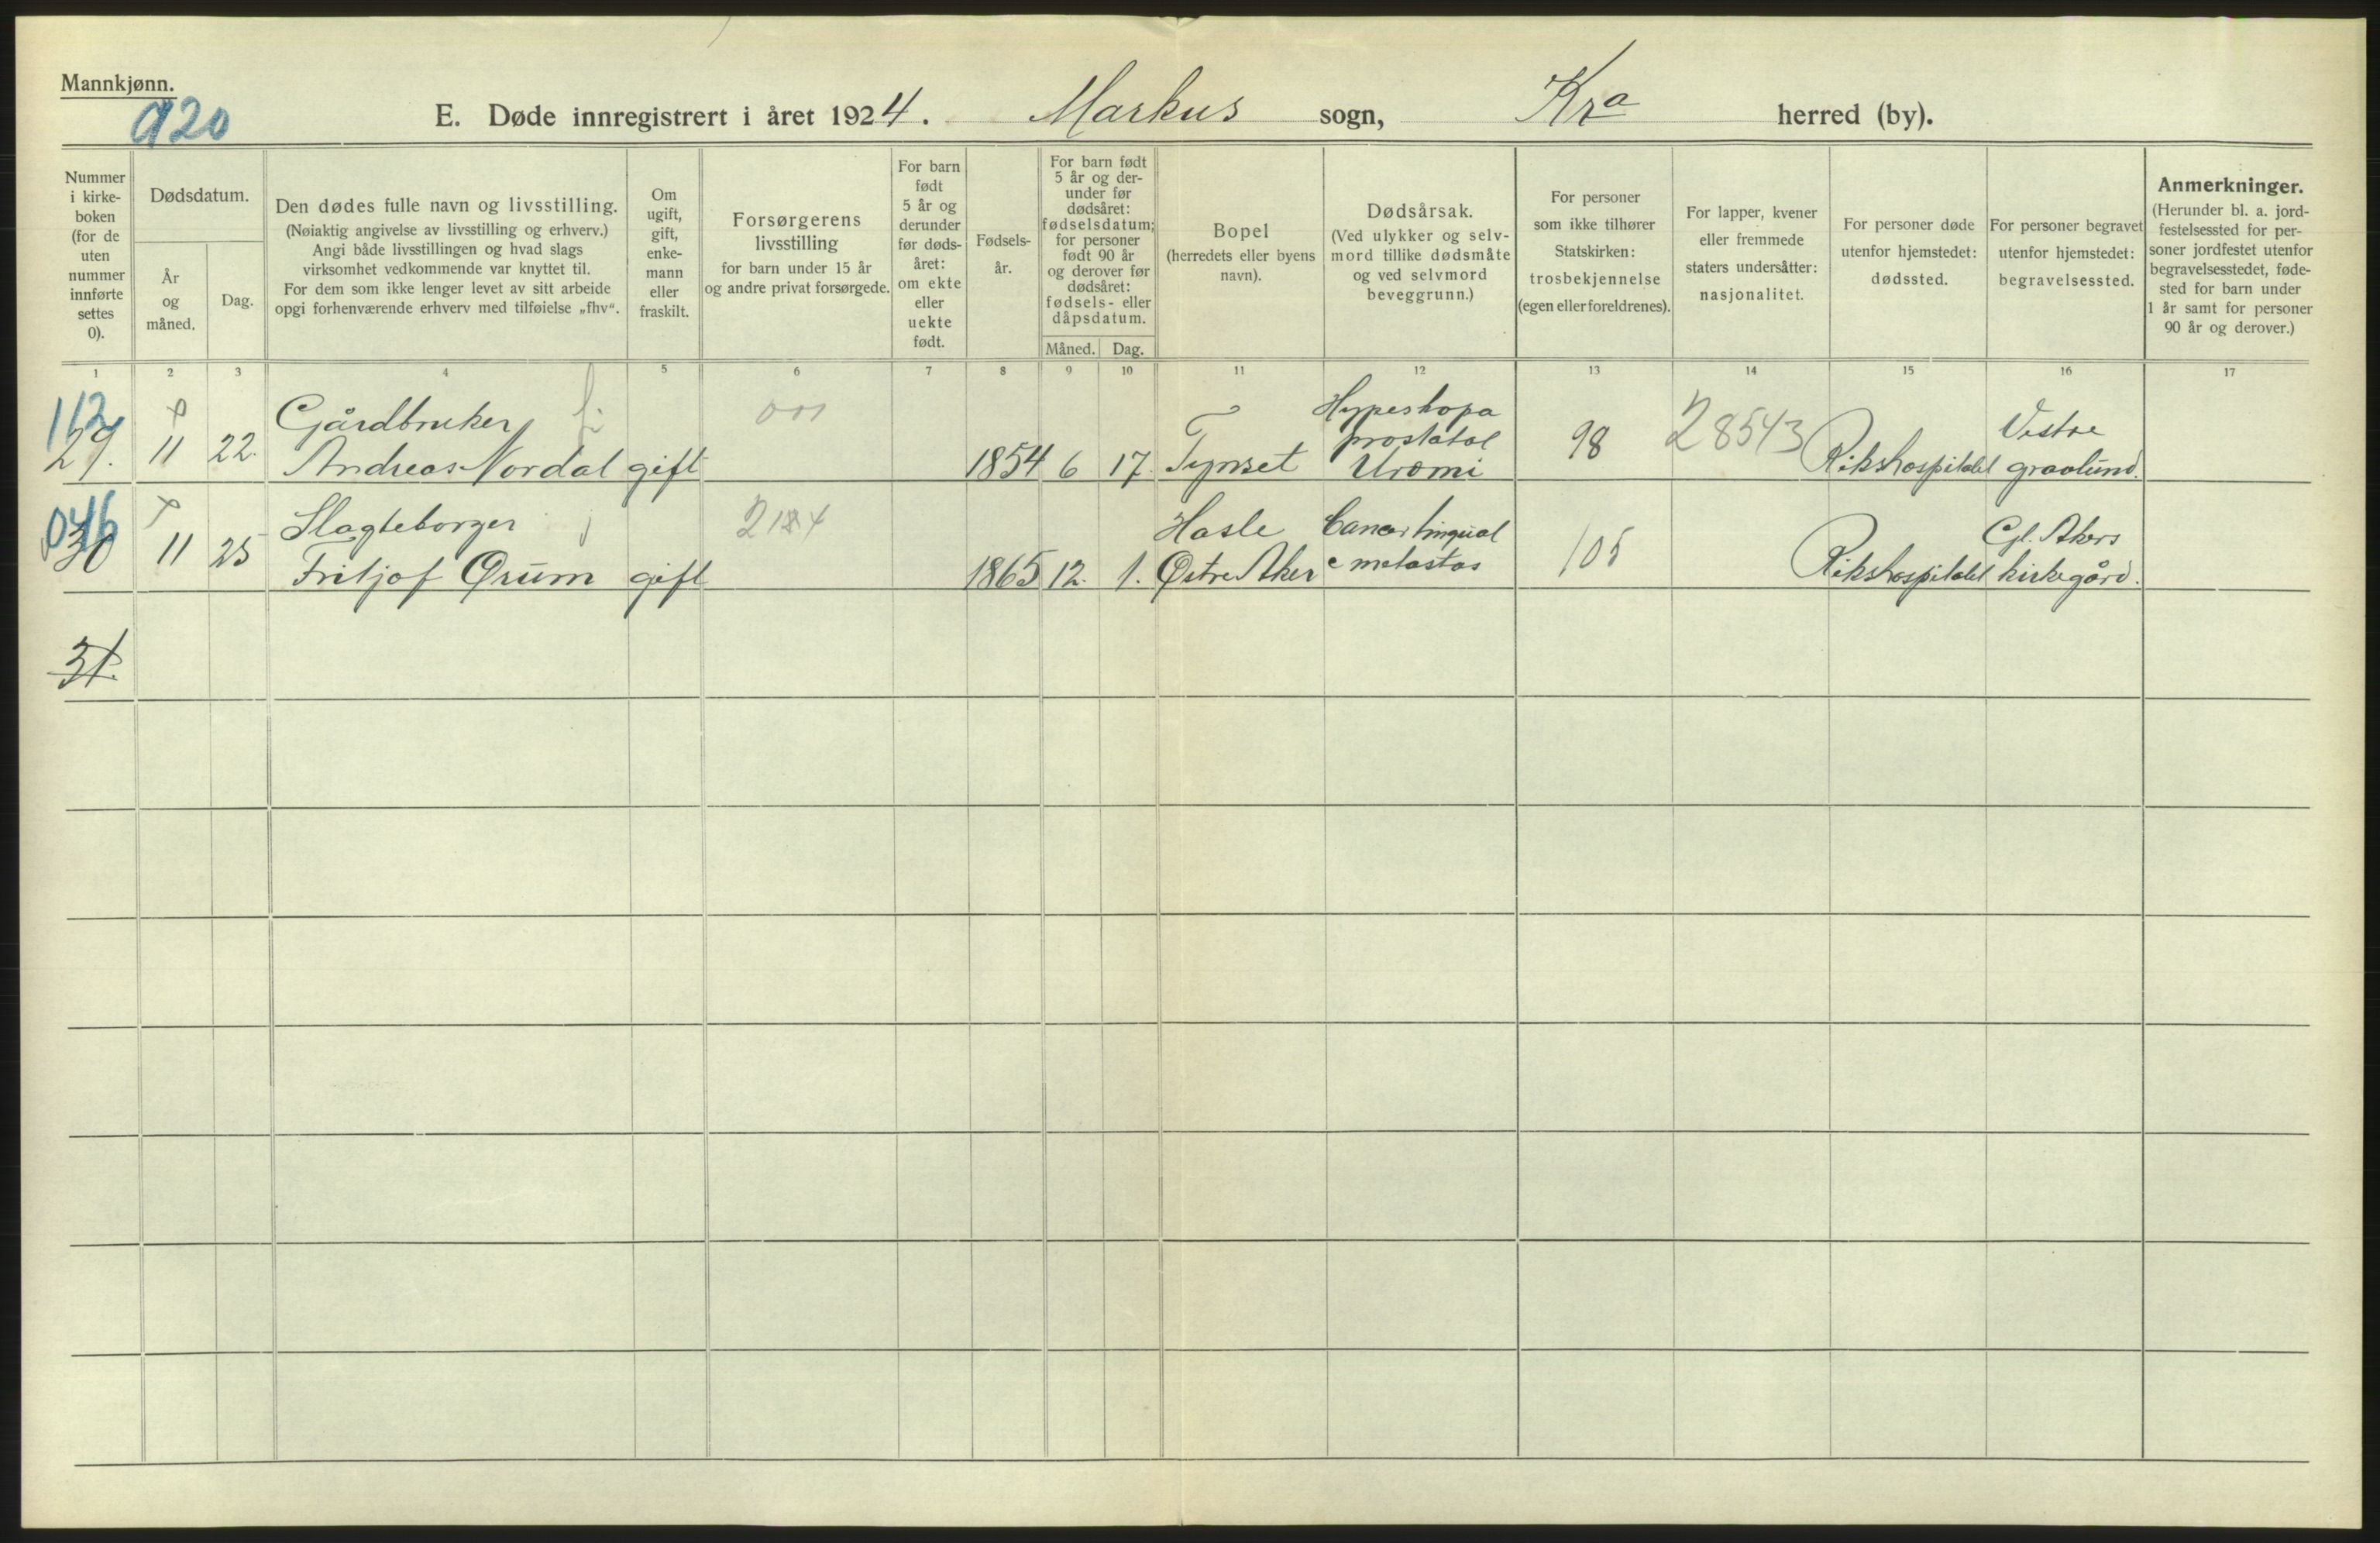 Mannkjønn.
920
E. Døde innregistrert i året 1924. Markus sogn, Kra herred (by).
Nummer
i kirke-
boken
(for de
uten
nummer
innførte
settes
0).
Dødsdatum.
År
og
måned.
Dag.
Den dødes fulle navn og livsstilling.
(Nøiaktig angivelse av livsstilling og erhverv.)
Angi både livsstillingen og hvad slags
virksomhet vedkommende var knyttet til.
For dem som ikke lenger levet av sitt arbeide
opgi forhenværende erhverv med tilføielse „fhv“.
Om
ugift,
gift,
enke-
mann
eller
fraskilt.
Forsørgerens
livsstilling
for barn under 15 år
og andre privat forsørgede.
For barn
født
5 år og
derunder
før døds-
året:
om ekte
eller
uekte
født.
Fødsels-
år.
For barn født
5 år og der-
under før
dødsåret:
fødselsdatum;
for personer
født 90 år
og derover før
dødsåret:
fødsels- eller
dåpsdatum.
Måned. Dag.
Bopel
(herredets eller byens
navn).
Dødsårsak.
(Ved ulykker og selv-
mord tillike dødsmåte
og ved selvmord
beveggrunn.)
For personer
som ikke tilhører
Statskirken:
trosbekjennelse
(egen eller foreldrenes).
For lapper, kvener
eller fremmede
staters undersåtter:
nasjonalitet.
For personer døde
utenfor hjemstedet:
dødssted.
For personer begravet
utenfor hjemstedet:
begravelsessted.
Anmerkninger.
(Herunder bl. a. jord-
festelsessted for per-
soner jordfestet utenfor
begravelsesstedet, føde-
sted for barn under
1 år samt for personer
90 år og derover.)
1 2 3 4 5 6 7 8 9 10 11 12 13 14 15 16 17
112 Gårdbruker Hypeshopa
prostatal 98 28543 Vestre
29. 11 22. Andreas Nordal gift 1854 6 17. Tynset Uromi Rikshospitalet gravlund.
046 Slagteborger 2184 Hasle Cancer lingual 105 Gl. Akers
30 11 25 Fritjof Ørum gift 1865 12. 1. Østre Aker c metastas Rikshospitalet kirkegård.
31.